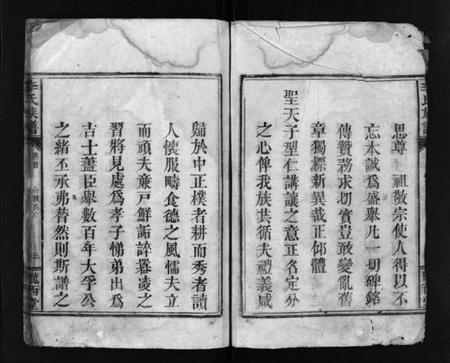 思尊 祖敬宗使人得以不
忘本誠爲盛舉凡一切碑銘
傳贊務求切實豈敢變亂舊
章獨標新異哉正仰體
聖天子型仁講讓之意正名定分
之心俾我族共循夫禮義咸
歸於中正樸者耕而秀者讀
人懷服疇食德之風懦夫立
而頑夫廉戸鮮詬誶暴凌之
習將見處爲孝子悌弟出爲
吉士藎臣舉數百年大孚公
之緒丕承弗替然則斯譜之
李氏族譜
隴西堂